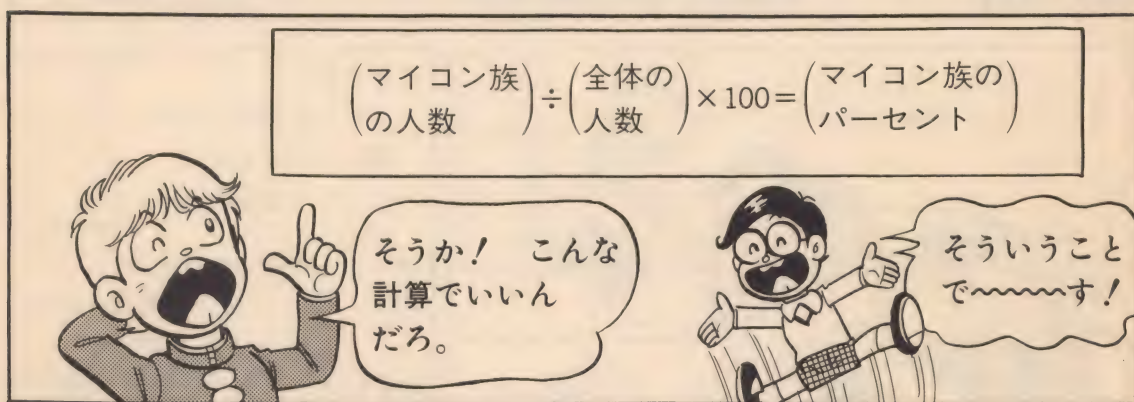 (マイコン族の人数)÷(全体の人数)×100=(マイコン族のパーセント)
そうか! こんな
計算でいいん
だろ。
そういうこと
で〜〜〜〜す!